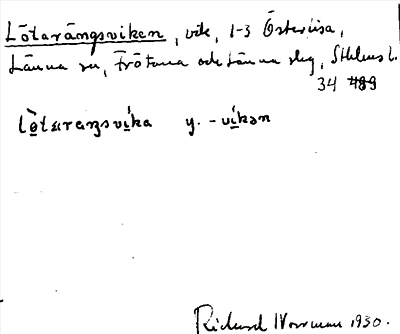 Lötarängsviken, vik, 1-3 Österlisa,
Länna sn, Frötuna och Länna skg, Sthlms l.
34 489
lö̀taraŋsvi̱ka y. -ví̱kən
Rickard Norrman 1930.